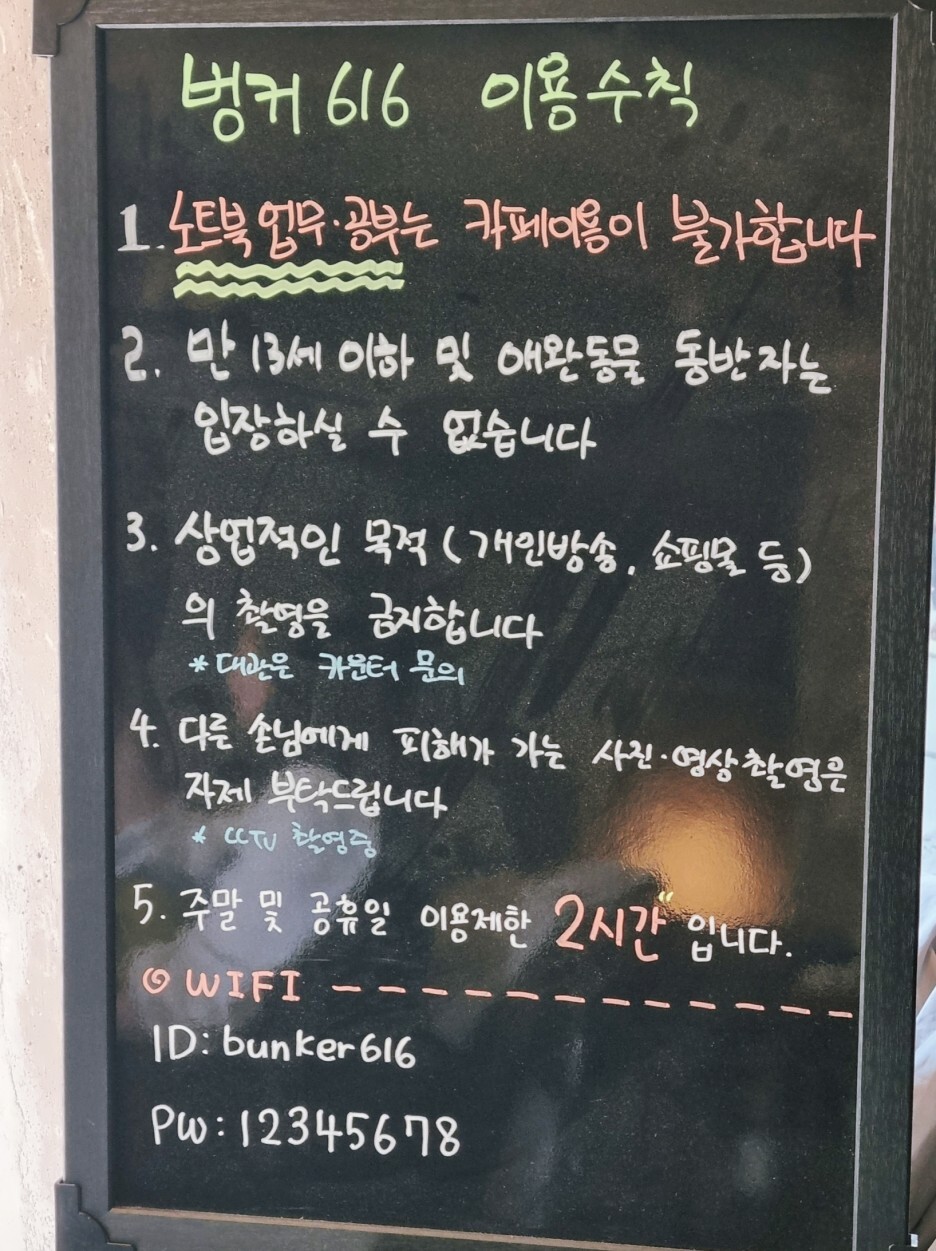 벙커 616 이용수칙
1. 노트북 업무·공부는 카페이용이 불가합니다
2. 만 13세 이하 및 애완동물 동반자는
입장하실 수 없습니다
3. 상업적인 목적 (개인방송, 쇼핑몰 등)
의 촬영을 금지합니다
* 대관은 카운터 문의
4. 다른 손님에게 피해가 가는 사진·영상촬영은
자제 부탁드립니다
* CCTV 촬영중
5. 주말 및 공휴일 이용제한 2시간" 입니다.
WIFI
ID: bunker616
PW: 12345678